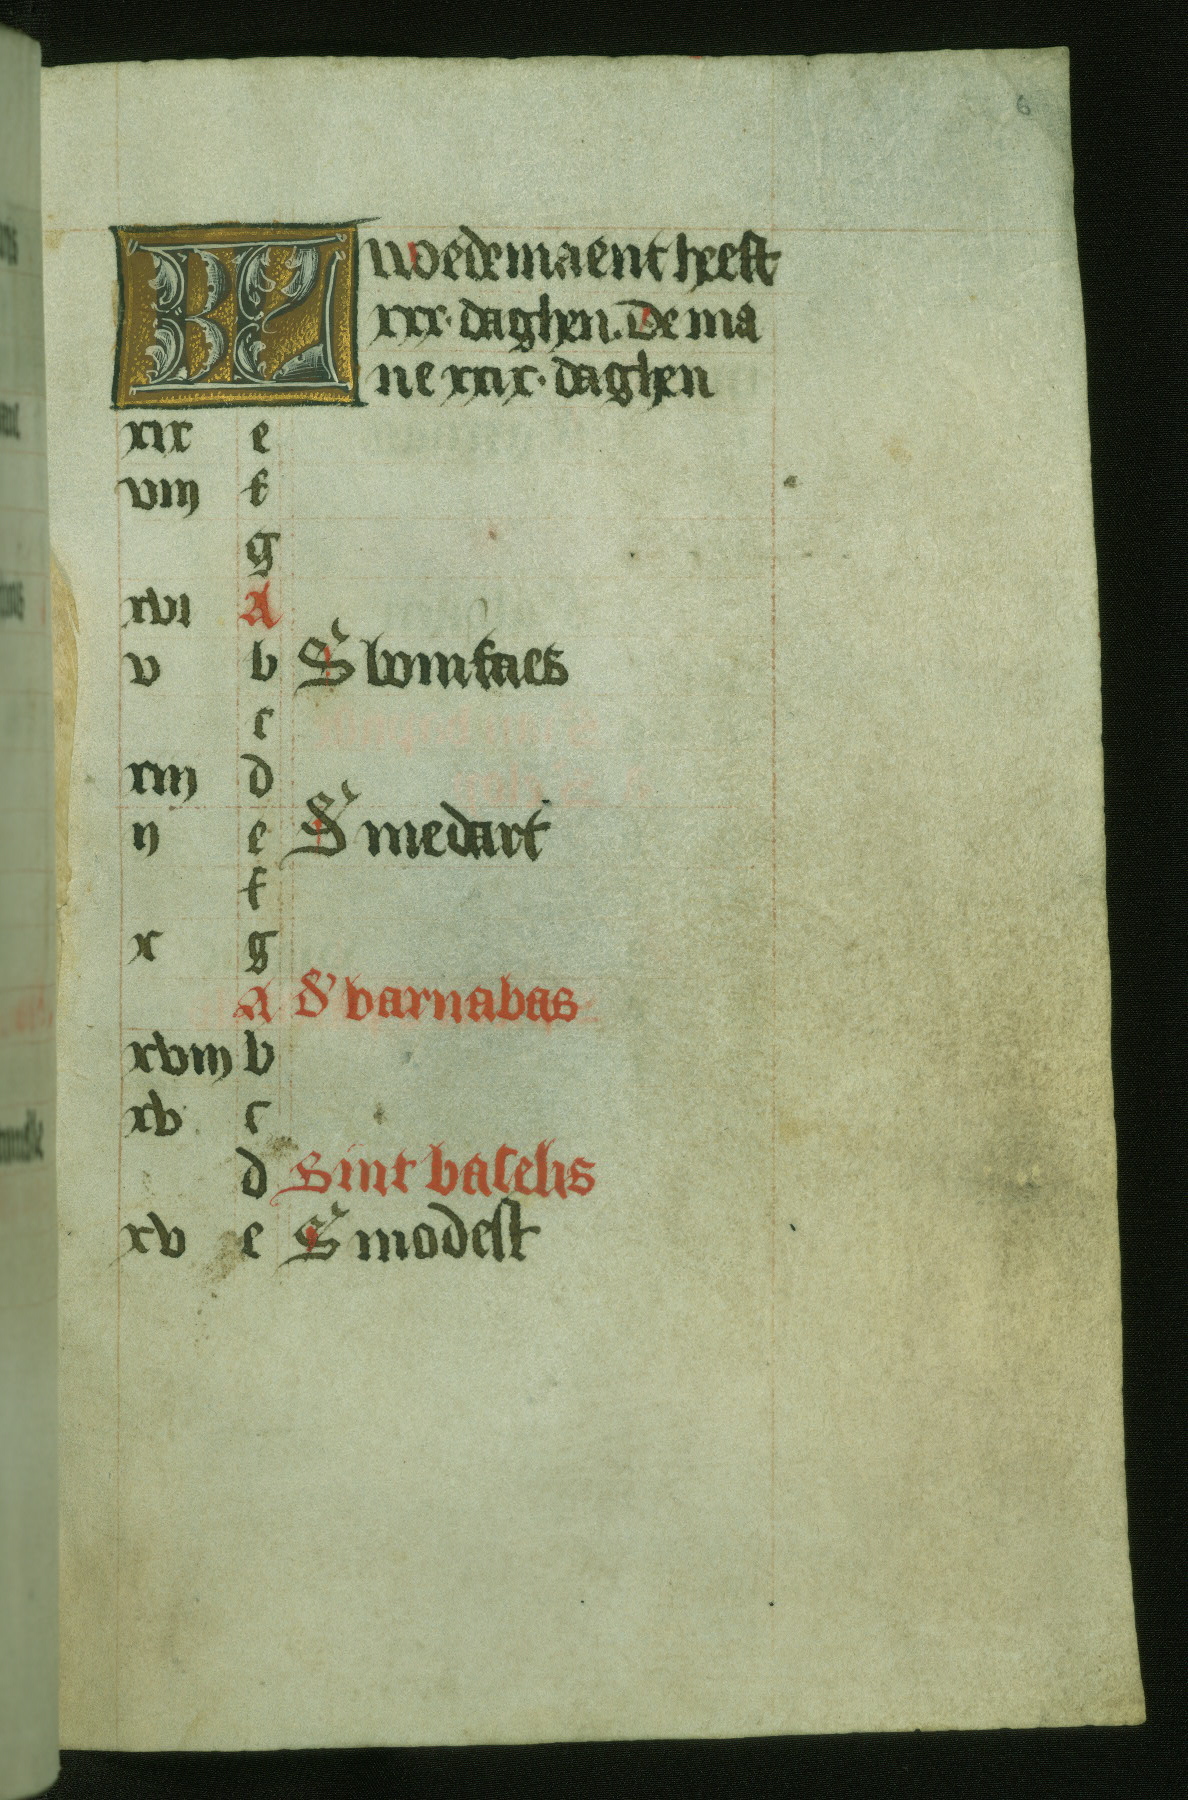 6
KL wedemaent heeft
xxx· daghen. De ma
ne xxix· daghen
xix e
viij f
g
xvi A
v b S bonifaes
c
xiij d
ij e S medart
f
x g
A S barnabas
xviij b
xv c
d Sint baselis
xv e S modest